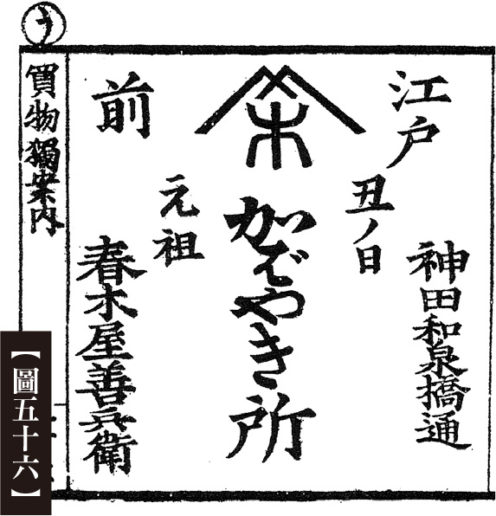 江戸
前
丑ノ日
元祖
かばやき所
神田和泉橋通
春木屋善兵衛
う
買物獨案内
【圖五十六】